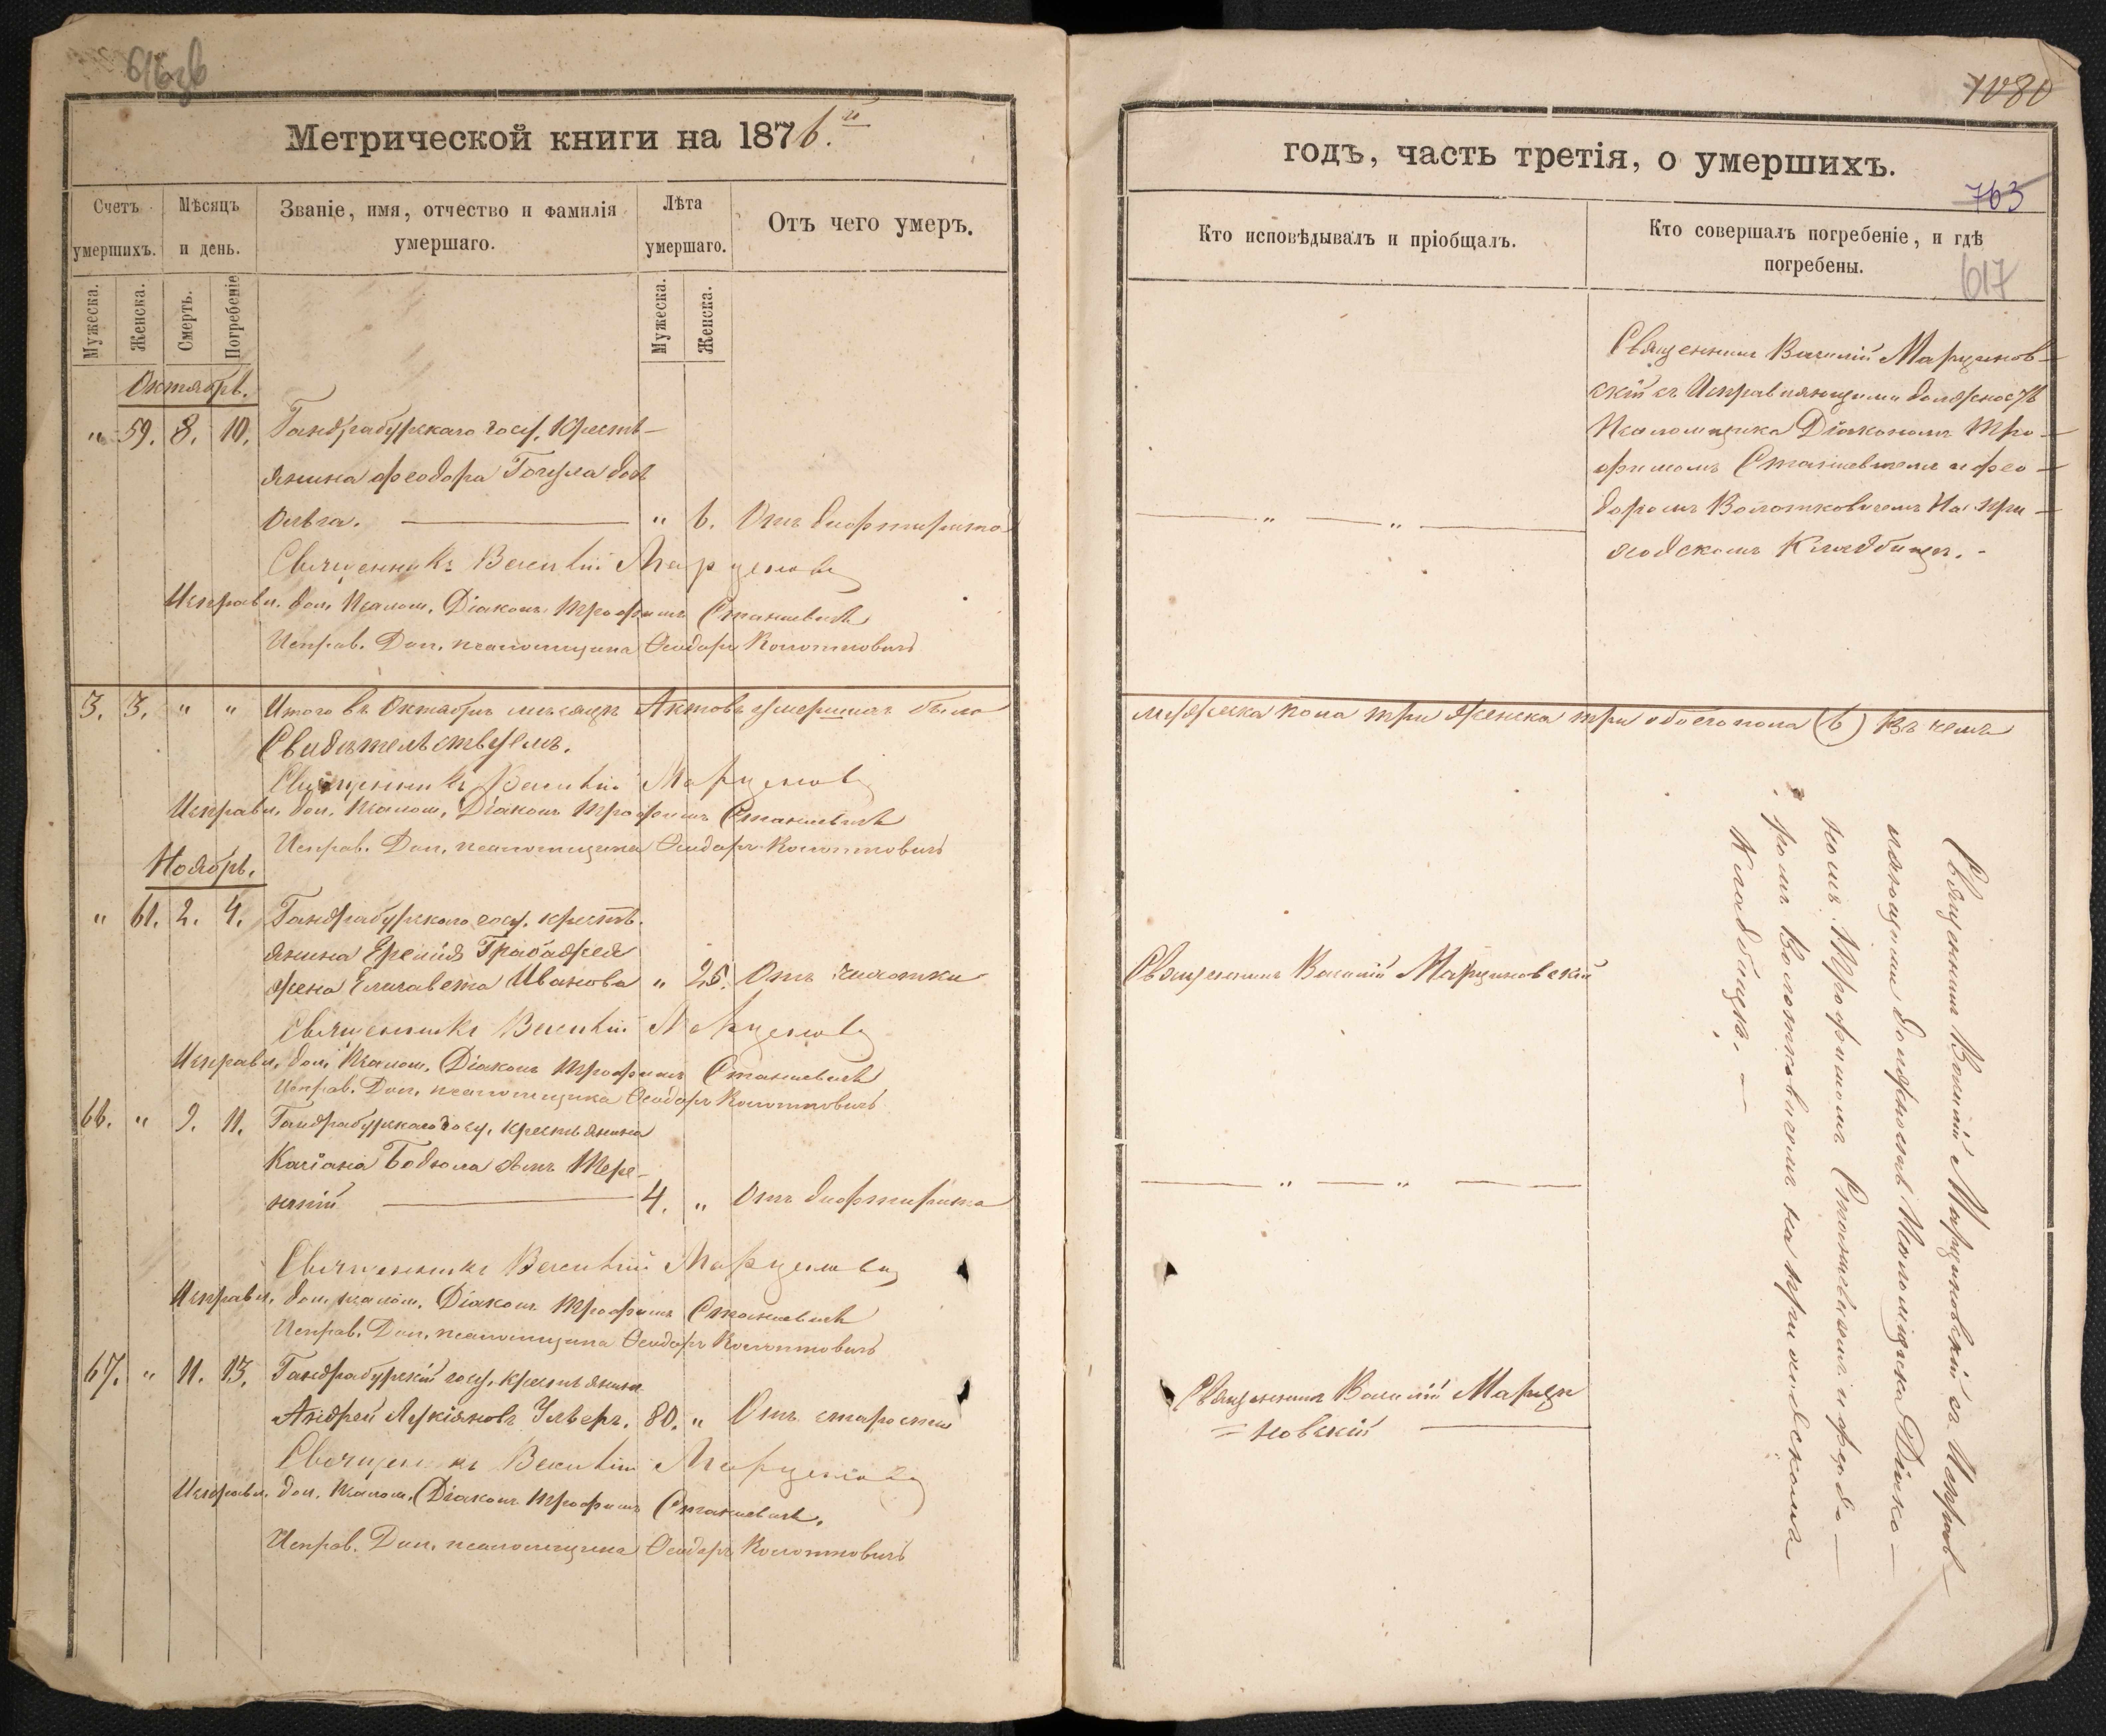 616 об
Метрической книги на 1876.й
Счетъ умершихъ.
Мѣсяцъ и день.
Званіе, имя, отчество и фамилія умершаго.
Лѣта умершаго.
Отъ чего умеръ.
Мужеска.
Женска.
Смерть.
Погребеніе
Мужеска.
Женска.
Октябрь.
" 59. 8. 10. Гандрабурскаго госу. крестья-
янина Феодора Гогула дочь
Ольга. " 6. Отъ дифтирита
Священникъ Василій Марцинов
Исправл. дол. Псалом. Діаконъ Трофимъ Станиевичъ
Исправ. Дол. псаломщика Ѳеодоръ Волотковичъ
3. 3. " " Итого въ Октябрѣ мѣсяцѣ Актовъ умершихъ было
Свидѣтельствуемъ.
Священникъ Василій Марцинов
Исправл. дол. Псалом. Діаконъ Трофимъ Станиевичъ
Исправ. Дол. псаломщика Ѳеодоръ Волотковичъ
Ноябрь.
" 61. 2. 4. Гандрабурскаго госу. крестья-
янина Еремія Грабаджея
жена Елисавета Иванова " 25. Отъ чахотки
Священникъ Василій Марцинов
Исправл. дол. Псалом. Діаконъ Трофимъ Станиевичъ
Исправ. Дол. псаломщика Ѳеодоръ Волотковичъ
66. " 9. 11. Гандрабурскаго госу. крестьянина
Касіана Бодюла сынъ Тере-
нтій 4. " Отъ дифтирита
Священникъ Василій Марцинов
Исправл. дол. псалом. Діаконъ Трофимъ Станиевичъ
Исправ. Дол. псаломщика Ѳеодоръ Волотковичъ
67. " 11. 13. Гандрабурскій госу. крестьянинъ
Андрей Лукіяновъ 80. " Отъ старости
Священникъ Василій Марцинов
Исправл. дол. Псалом. Діаконъ Трофимъ Станиевичъ.
Исправ. Дол. псаломщика Ѳеодоръ Волотковичъ
1080
годъ, часть третія, о умершихъ.
763
Кто исповѣдывалъ и пріобщалъ.
Кто совершалъ погребеніе, и гдѣ погребены.
617
Священникъ Василій Марцинов-
скій съ Исправляющими должность
Псаломщика Діакономъ Тро-
фимомъ Станиевичемъ и Фео-
доромъ Волотковичемъ На при-
ходскомъ Кладбищѣ.
" "
мужеска пола три женска три обоего пола (6) Въ чемъ
Священникъ Василій Марциновскій
" "
Священникъ Василій Марци
=новскій
Священникъ Василій Марциновскій съ Исправ-
ляющими должность Псаломщика Діако-
номъ Трофимомъ Станиевичемъ и Феодо-
ромъ Волотковичемъ на приходскомъ
Кладбищѣ.